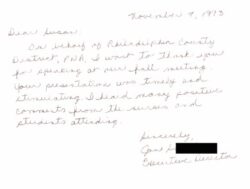 November 9, 1973
Dear Susan:
On behalf of Philadelphia County
District, PNA, I want to thank you
for speaking at our fall meeting.
Your presentation was timely and
stimulating. I heard many positive
comments from the nurses and
students attending.
Sincerely,
Executive Director